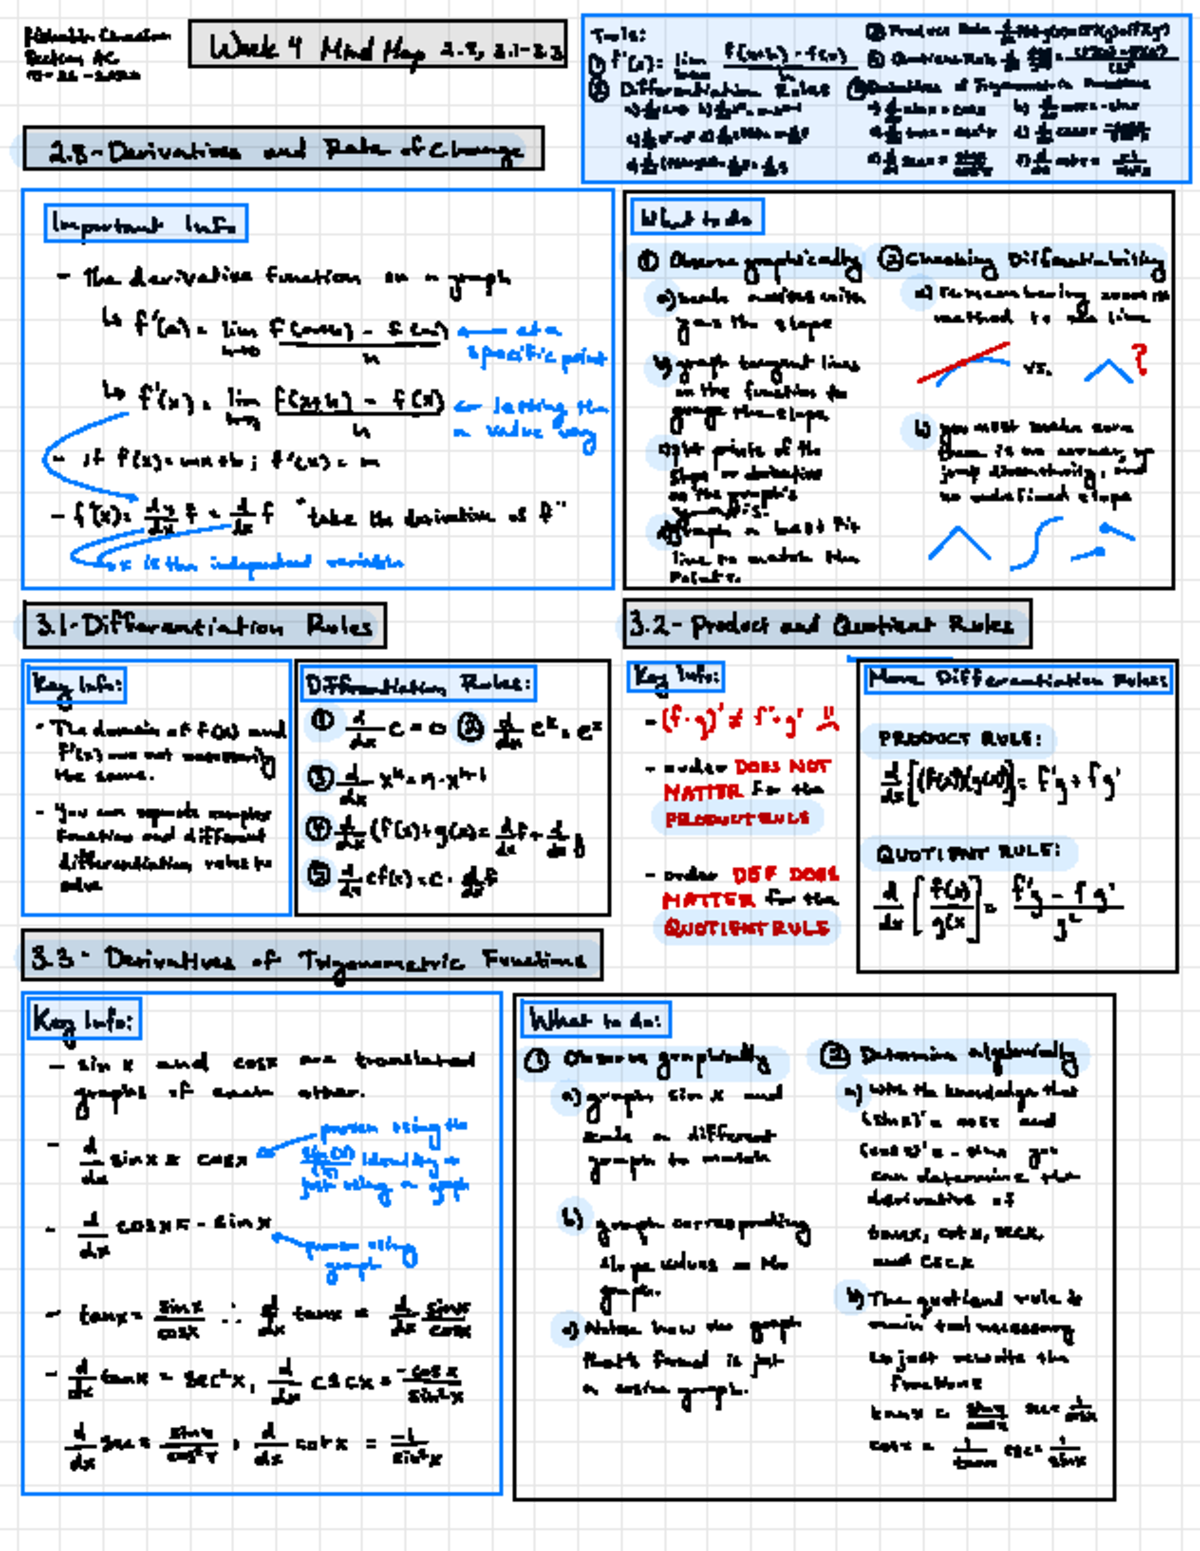 Week 4 Mind Map 2.8, 3.1-3.3
Tools:
① f'(x) = lim f(x+h) - f(x) / h
② Differentiation Rules
③ Product Rule
④ Quotient Rule
Derivatives of Trigonometric Functions
2.8 - Derivatives and Rate of Change
Important Info
- The derivative function on a graph
↳ f'(a) = lim h→0 f(a+h) - f(a) / h ← at a specific point
↳ f'(x) = lim h→0 f(x+h) - f(x) / h ← letting the a value vary
- if f(x) = mx+b ; f'(x) = m
- f'(x) = dy/dx f = d/dx f "take the derivative of f"
x is the independent variable
What to do
① Observe graphically
gauge the slope
b) graph tangent lines
on the function to
gauge the slope
c) plot points of the
slope or derivative
on the graph's
d) graph a best fit
line to match the
points.
② Checking Differentiability
a) Remembering zoom in
method to see line
vs. ?
b) you must make sure
there is no corner, no
jump discontinuity, and
no undefined slope
3.1 - Differentiation Rules
Key Info:
- The domain of f(x) and
f'(x) are not necessarily
the same.
- You can separate complex
function and different
differentiation rules to
solve
Differentiation Rules:
① d/dx c = 0 ② d/dx e^x = e^x
③ d/dx x^n = n · x^n-1
④ d/dx (f(x) + g(x)) = d/dx f + d/dx g
⑤ d/dx cf(x) = c · d/dx f
3.2 - Product and Quotient Rules
Key Info:
- (f · g)' ≠ f' · g'
- order DOES NOT
MATTER for the
PRODUCT RULE
- order DEF DOES
MATTER for the
QUOTIENT RULE
More Differentiation Rules
PRODUCT RULE:
d/dx [(f(x))(g(x))] = f'g + fg'
QUOTIENT RULE:
d/dx [f(x)/g(x)] = f'g - fg' / g²
3.3 - Derivatives of Trigonometric Functions
Key Info:
- sin x and cos x are translated
graphs of each other.
- d/dx sin x = cos x
proven using the
identity or
just using a graph
- d/dx cos x = - sin x
proven using
graph
- tan x = sin x / cos x ∴ d/dx tan x = d/dx sin x / cos x
- d/dx tan x = sec² x, d/dx csc x = -cos x / sin² x
d/dx sec x = sin x / cos² x, d/dx cot x = -1 / sin² x
What to do:
① Observe graphically
a) graph sin x and
scale a different
graph to match
b) graph corresponding
slope values on the
graph.
c) Notice how the graph
that's formed is just
a cosine graph.
② Determine algebraically
a) With the knowledge that
(sin x)' = cos x and
(cos x)' = - sin x you
can determine the
derivative of
tan x, cot x, sec x,
and csc x
b) The quotient rule is
main tool necessary
so just rewrite the
functions
tan x = sin x / cos x sec = 1 / cos x
cot x = 1 / tan x csc = 1 / sin x